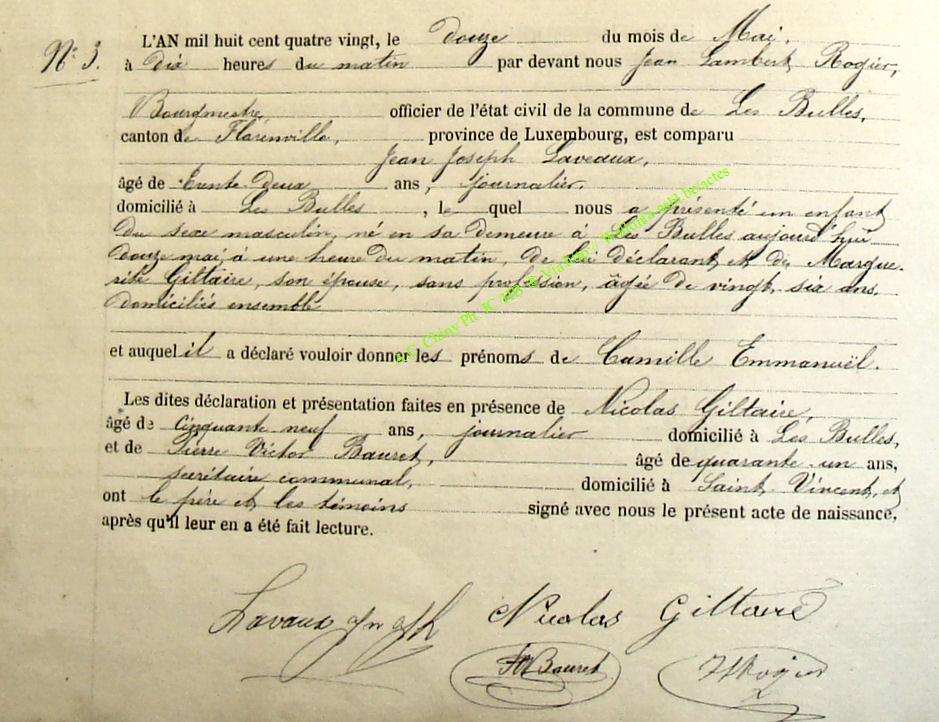 N° 3.
L'AN mil huit cent quatre vingt, le douze du mois de Mai,
à dix heures du matin par devant nous Jean Lambert Rogier,
Bourgmestre, officier de l'état civil de la commune de Les Bulles,
canton de Florenville, province de Luxembourg, est comparu
Jean Joseph Laveaux,
âgé de trente-deux ans, journalier,
domicilié à Les Bulles, lequel nous a présenté un enfant
du sexe masculin, né en sa demeure à Les Bulles aujourd'hui
douze mai, à une heure du matin, de lui déclarant et de Margue-
rite Giltaire, son épouse, sans profession, âgée de vingt-six ans,
domiciliés ensemble
et auquel il a déclaré vouloir donner les prénoms de Camille Emmanuël.
Les dites déclaration et présentation faites en présence de Nicolas Giltaire,
âgé de cinquante neuf ans, journalier domicilié à Les Bulles,
et de Pierre Victor Bauret, âgé de quarante-un ans,
secrétaire communal, domicilié à Saint-Vincent, et
ont le père et les témoins signé avec nous le présent acte de naissance,
après qu'il leur en a été fait lecture.
Lavaux Nicolas Giltaire
Bauret Rogier